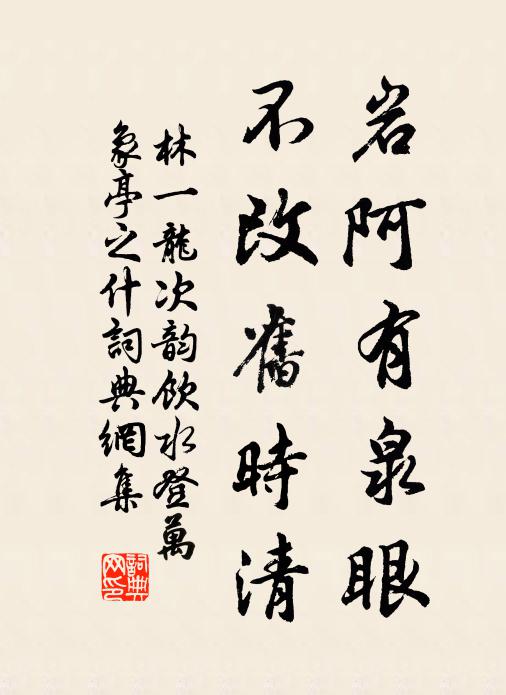 岩阿有泉眼
不改舊時清
林一龍次韵飲水登萬
象亭之什詞典網集
詞典
网印